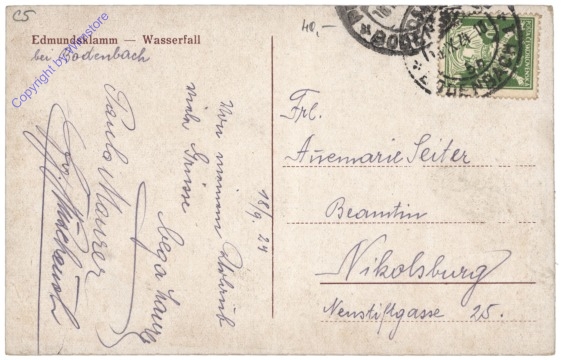 C5
40,-
Edmundsklamm — Wasserfall
bei Bodenbach
Copyright by vivastore
18/9. 24
Von meinem Urlaub
viele Grüsse
Paula Maurer
Frl.
Annemarie Seiter
Beamtin
Nikolsburg
Neustiftgasse 25.